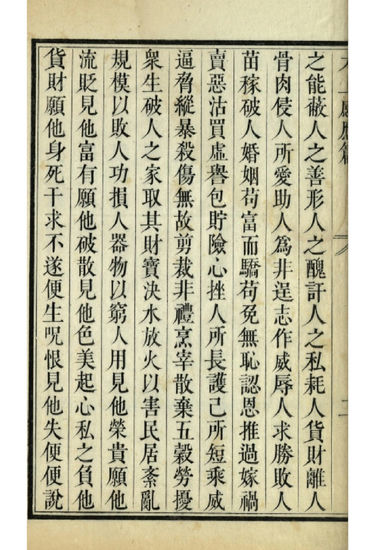 太上感應篇
二
之能蔽人之善形人之醜訐人之私耗人貨財離人
骨肉侵人所愛助人爲非逞志作威辱人求勝敗人
苗稼破人婚姻苟富而驕苟免無恥認恩推過嫁禍
賣惡沽買虛譽包貯險心挫人所長護己所短乘威
逼脅縱暴殺傷無故剪裁非禮烹宰散棄五穀勞擾
衆生破人之家取其財寶決水放火以害民居紊亂
規模以敗人功損人器物以窮人用見他榮貴願他
流貶見他富有願他破散見他色美起心私之負他
貨財願他身死干求不遂便生呪恨見他失便便說